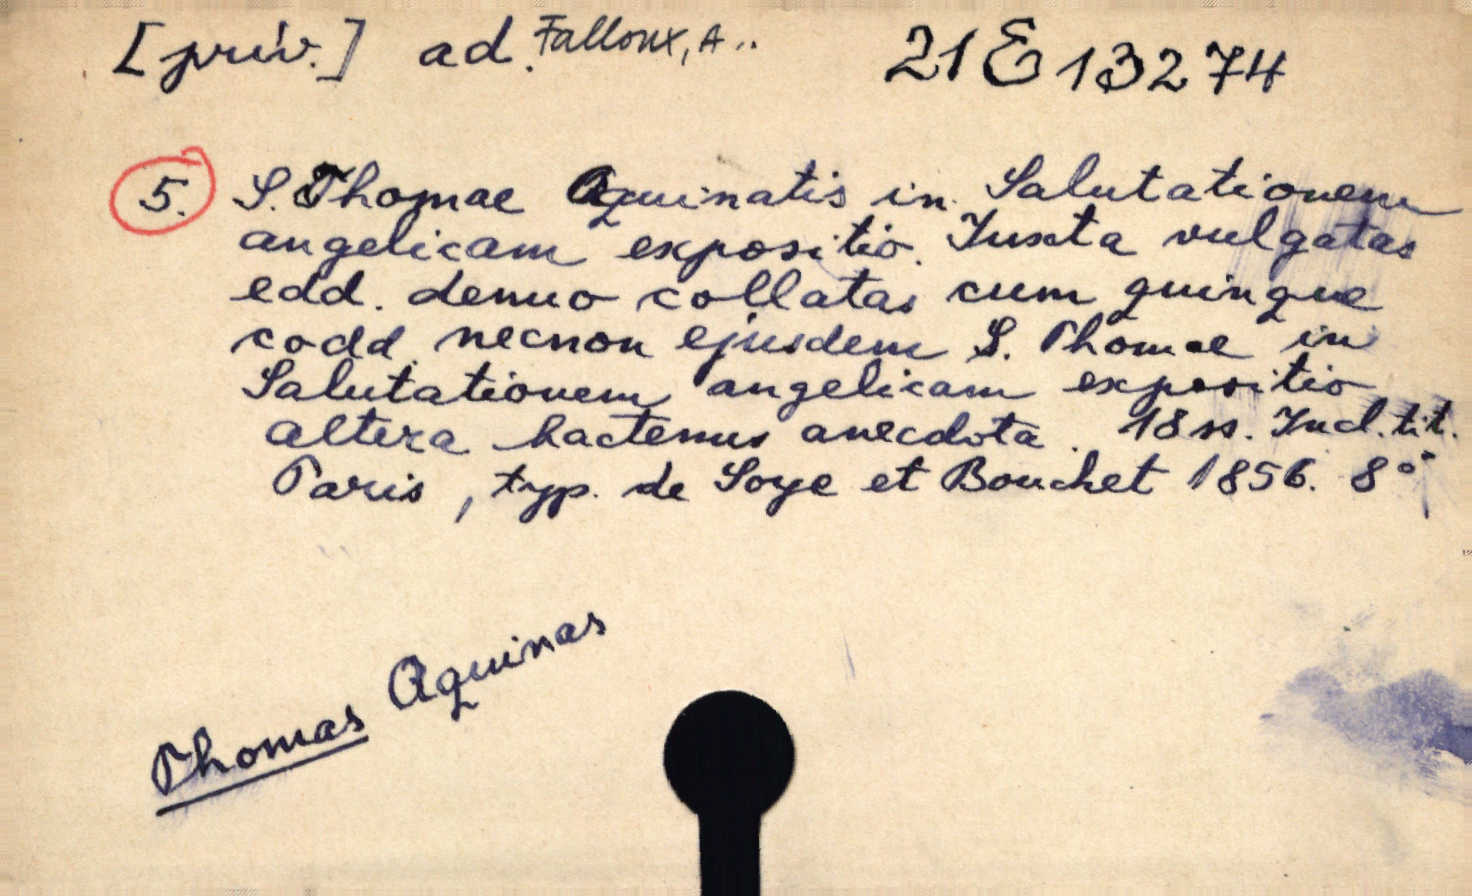 [priv.] ad. Falloux, A.. 21 E 13274
5. S. Thomae Aquinatis in Salutationem
angelicam expositio. Iuxta vulgatas
edd. denuo collatas cum quinque
codd. necnon ejusdem S. Thomae in
Salutationem angelicam expositio
altera hactenus anecdota. 18 ss. Incl. tit.
Paris, typ. de Soye et Bouchet 1856. 8°
Thomas Aquinas